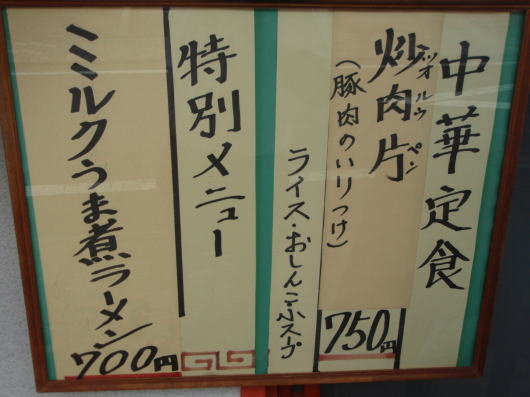 中華定食
炒肉片
ツオルウペン
(豚肉のいりつけ)
750円
ライス・おしんこ・スープ
特別メニュー
ミルクうま煮ラーメン
700円